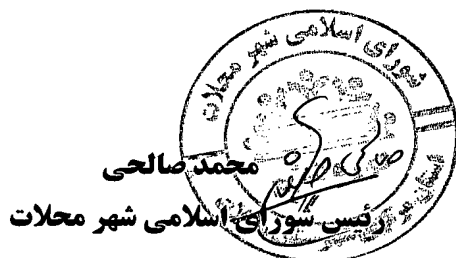 شورای اسلامی شهر محلات
محمد صالحی
رئیس شورای اسلامی شهر محلات